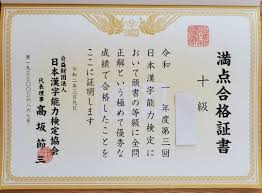 満点合格証書
十級
令和一年度第三回
日本漢字能力検定に
おいて頭書の等級に全問
正解という極めて優秀な
成績で合格したことを
ここに証明します
令和二年三月九日
公益財団法人
日本漢字能力検定協会
代表理事 髙坂節三